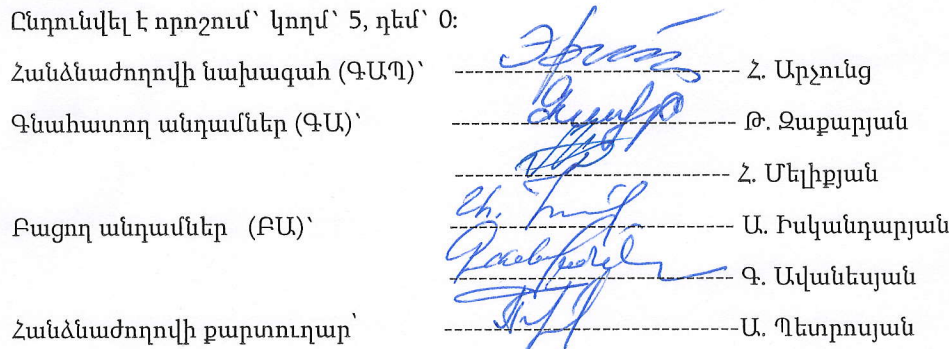 Ընդունվել է որոշում՝ կողմ՝ 5, դեմ՝ 0:
Հանձնաժողովի նախագահ (ԳԱՊ)՝ Հ. Արշունց
Գնահատող անդամներ (ԳԱ)՝ Թ. Զաքարյան
Հ. Մելիքյան
Բացող անդամներ (ԲԱ)՝ Ա. Իսկանդարյան
Գ. Ավանեսյան
Հանձնաժողովի քարտուղար՝ Ա. Պետրոսյան